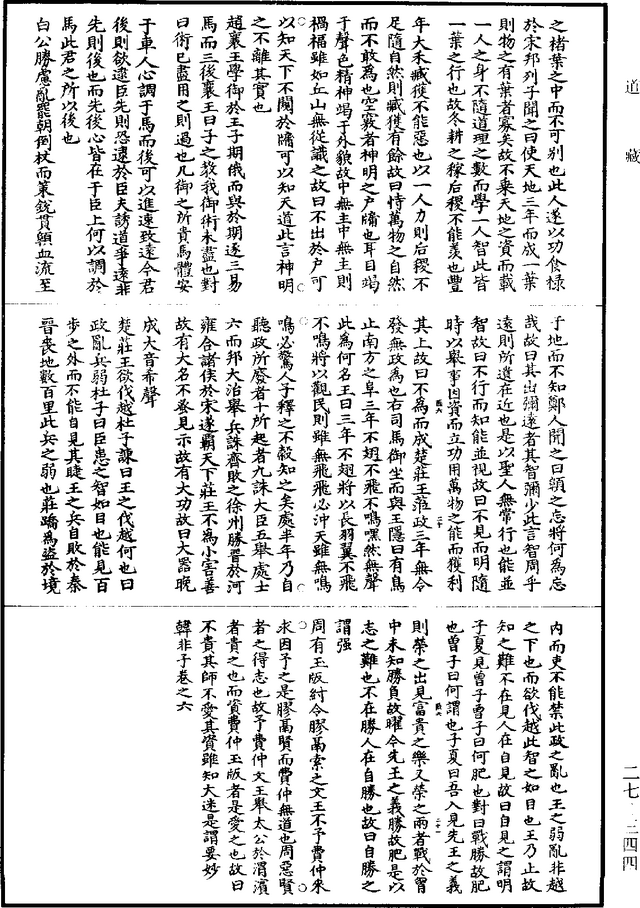 道藏
之楮葉之中而不可别也此人遂以功食祿
於宋邦列子聞之曰使天地三年而成一葉
則物之有葉者寡矣故不乘天地之資而載
一人之身不隨道理之數而學一人智此皆
一葉之行也故冬耕之稼后稷不能羨也豐
年大禾臧獲不能惡也以一人力則后稷不
足隨自然則臧獲有餘故曰恃萬物之自然
而不敢為也空竅者神明之户牖也耳目竭
于聲色精神竭于外貌故中無主中無主則
禍福雖如丘山無從識之故曰不出於户可
以知天下不闚於牖可以知天道此言神明
之不離其實也
趙襄王學御於王子期俄而與於期逐三易
馬而三後襄王曰子之教我御術未盡也對
曰術已盡用之則過也凡御之所貴馬體安
于車人心調于馬而後可以進速致遠今君
後則欲逮臣先則恐逮於臣夫誘道爭遠非
先則後也而先後心皆在于臣上何以調於
馬此君之所以後也
白公勝慮亂罷朝倒杖而策銳貫頤血流至
于地而不知鄭人聞之曰頤之忘將何為忘
哉故曰其出彌遠者其智彌少此言智周乎
遠則所遺在近也是以聖人無常行也能並
智故曰不行而知能並視故曰不見而明隨
時以舉事因資而立功用萬物之能而獲利
其上故曰不為而成楚莊王蒞政三年無令
發無政為也右司馬御坐而與王隱曰有鳥
止南方之阜三年不翅不飛不鳴嘿然無聲
此為何名王曰三年不翅將以長羽翼不飛
不鳴將以觀民則雖無飛飛必沖天雖無鳴
鳴必驚人子釋之不榖知之矣處半年乃自
聽政所廢者十所起者九誅大臣五舉處士
六而邦大治舉兵誅齊敗之徐州勝晉於河
雍合諸侯於宋遂霸天下莊王不為小害善
故有大名不蚤見示故有大功故曰大器晚
成大音希聲
楚莊王欲伐越杜子諫曰王之伐越何也曰
政亂兵弱杜子曰臣患之智如目也能見百
步之外而不能自見其睫王之兵自敗於秦
晉喪地數百里此兵之弱也莊蹻為盜於境
内而吏不能禁此政之亂也王之弱亂非越
之下也而欲伐越此智之如目也王乃止故
知之難不在見人在自見故曰自見之謂明
子夏見曾子曾子曰何肥也對曰戰勝故肥
也曾子曰何謂也子夏曰吾入見先王之義
則榮之出見富貴之樂又榮之兩者戰於胷
中未知勝負故臞今先王之義勝故肥是以
志之難也不在勝人在自勝也故曰自勝之
謂强
周有玉版紂令膠鬲索之文王不予費仲來
求因予之是膠鬲賢而費仲無道也周惡賢
者之得志也故予費仲文王舉太公於渭濱
者貴之也而資費仲玉版者是愛之也故曰
不貴其師不愛其資雖知大迷是謂要妙
韓非子卷之六
二七·三四四